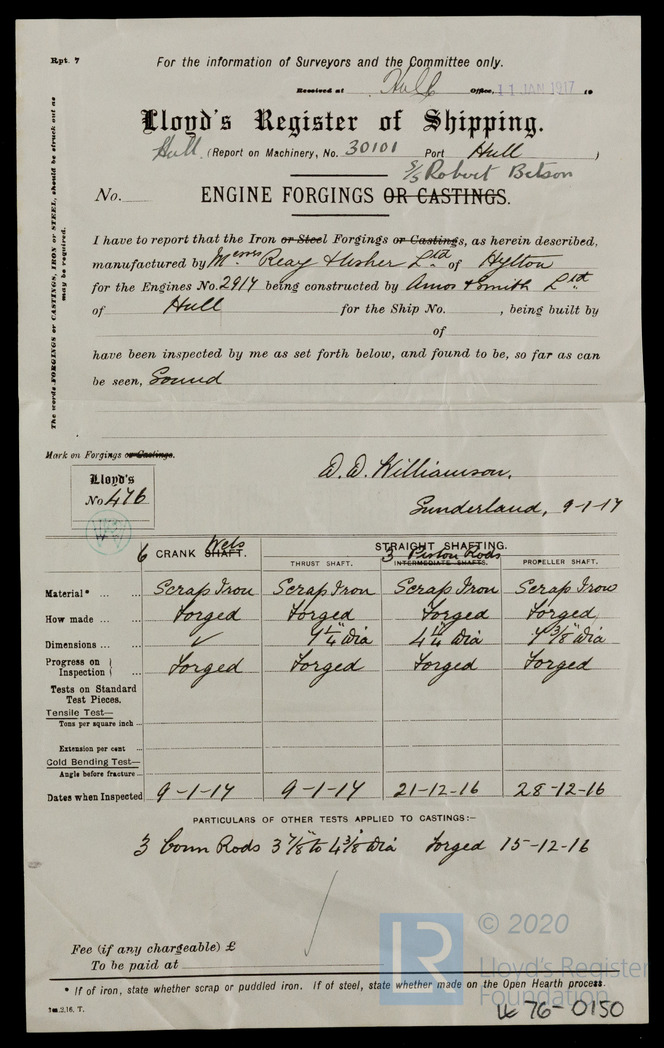 Rpt. 7
For the information of Surveyors and the Committee only.
Received at Hull Office, 11 JAN 1917 19
Lloyd's Register of Shipping.
Hull. (Report on Machinery, No. 30101 Port Hull )
S/S Robert Betson
No.
ENGINE FORGINGS OR CASTINGS.
I have to report that the Iron or Steel Forgings or Castings, as herein described,
manufactured by Messrs Reay & Usher Ltd of Hylton
for the Engines No. 2917 being constructed by Amos & Smith Ltd
of Hull for the Ship No. , being built by
of
have been inspected by me as set forth below, and found to be, so far as can
be seen, Sound
The words FORGINGS or CASTINGS, IRON or STEEL, should be struck out as
may be required.
Mark on Forgings or Castings.
Lloyd's
No 476
D. D. Williamson.
Sunderland, 9-1-17
6 CRANK SHAFT. Webs
STRAIGHT SHAFTING.
THRUST SHAFT. 3 Piston Rods INTERMEDIATE SHAFTS. PROPELLER SHAFT.
Material* ... ... Scrap Iron Scrap Iron Scrap Iron Scrap Iron
How made ... ... Forged Forged Forged Forged
Dimensions ... ... ✓ 7 1/4" Dia 4 1/4" Dia 7 3/8" Dia
Progress on Inspection } ... Forged Forged Forged Forged
Tests on Standard
Test Pieces.
Tensile Test—
Tons per square inch ...
Extension per cent ...
Cold Bending Test—
Angle before fracture ...
Dates when Inspected 9-1-17 9-1-17 21-12-16 28-12-16
PARTICULARS OF OTHER TESTS APPLIED TO CASTINGS:—
3 Conn Rods 3 7/8" to 4 3/8" Dia Forged 15-12-16
Fee (if any chargeable) £
To be paid at
* If of iron, state whether scrap or puddled iron. If of steel, state whether made on the Open Hearth process.
1m.2,16. T.
LR © 2020
Lloyd's Register
Foundation
LE 76-0150